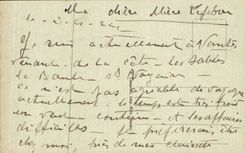 Ma chère Mère Lefebvre
Je suis actuellement à Nantes
venant de la côte. les Sables
La Baule St Nazaire
ce n'est pas agréable de voyager
actuellement. le temps est très froid
un vent continu et les affaires
difficiles je préférerais être
chez moi, près de mes